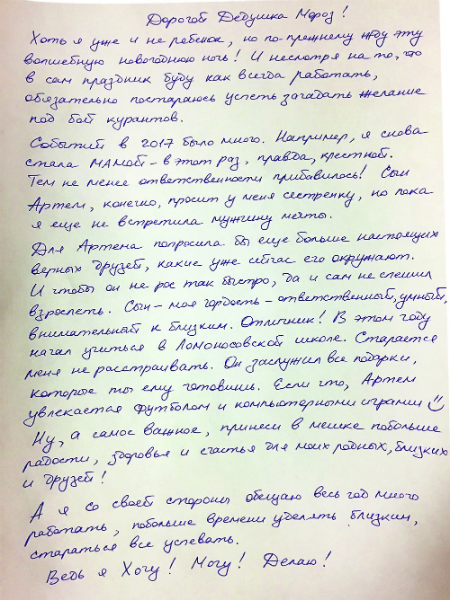 Дорогой Дедушка Мороз!
Хоть я уже и не ребенок, но по-прежнему жду эту
волшебную новогоднюю ночь! И несмотря на то, что
в сам праздник буду как всегда работать,
обязательно постараюсь успеть загадать желание
под бой курантов.
Событий в 2017 было много. Например, я снова
стала МАМОЙ - в этот раз, правда, крестной.
Тем не менее ответственности прибавилось! Сын
Артем, конечно, просит у меня сестренку, но пока
я еще не встретила мужчину мечты.
Для Артема попросила бы еще больше настоящих
верных друзей, какие уже сейчас его окружают.
И чтобы он не рос так быстро, да и сам не спешил
взрослеть. Сын - моя гордость - ответственный, умный,
внимательный к близким. Отличник! В этом году
начал учиться в Ломоносовской школе. Старается
меня не расстраивать. Он заслужил все подарки,
которые ты ему готовишь. Если что, Артем
увлекается футболом и компьютерными играми
Ну, а самое важное, принеси в мешке побольше
радости, здоровья и счастья для моих родных, близких
и друзей!
А я со своей стороны обещаю весь год много
работать, побольше времени уделять близким,
стараться все успевать.
Ведь я Хочу! Могу! Делаю!